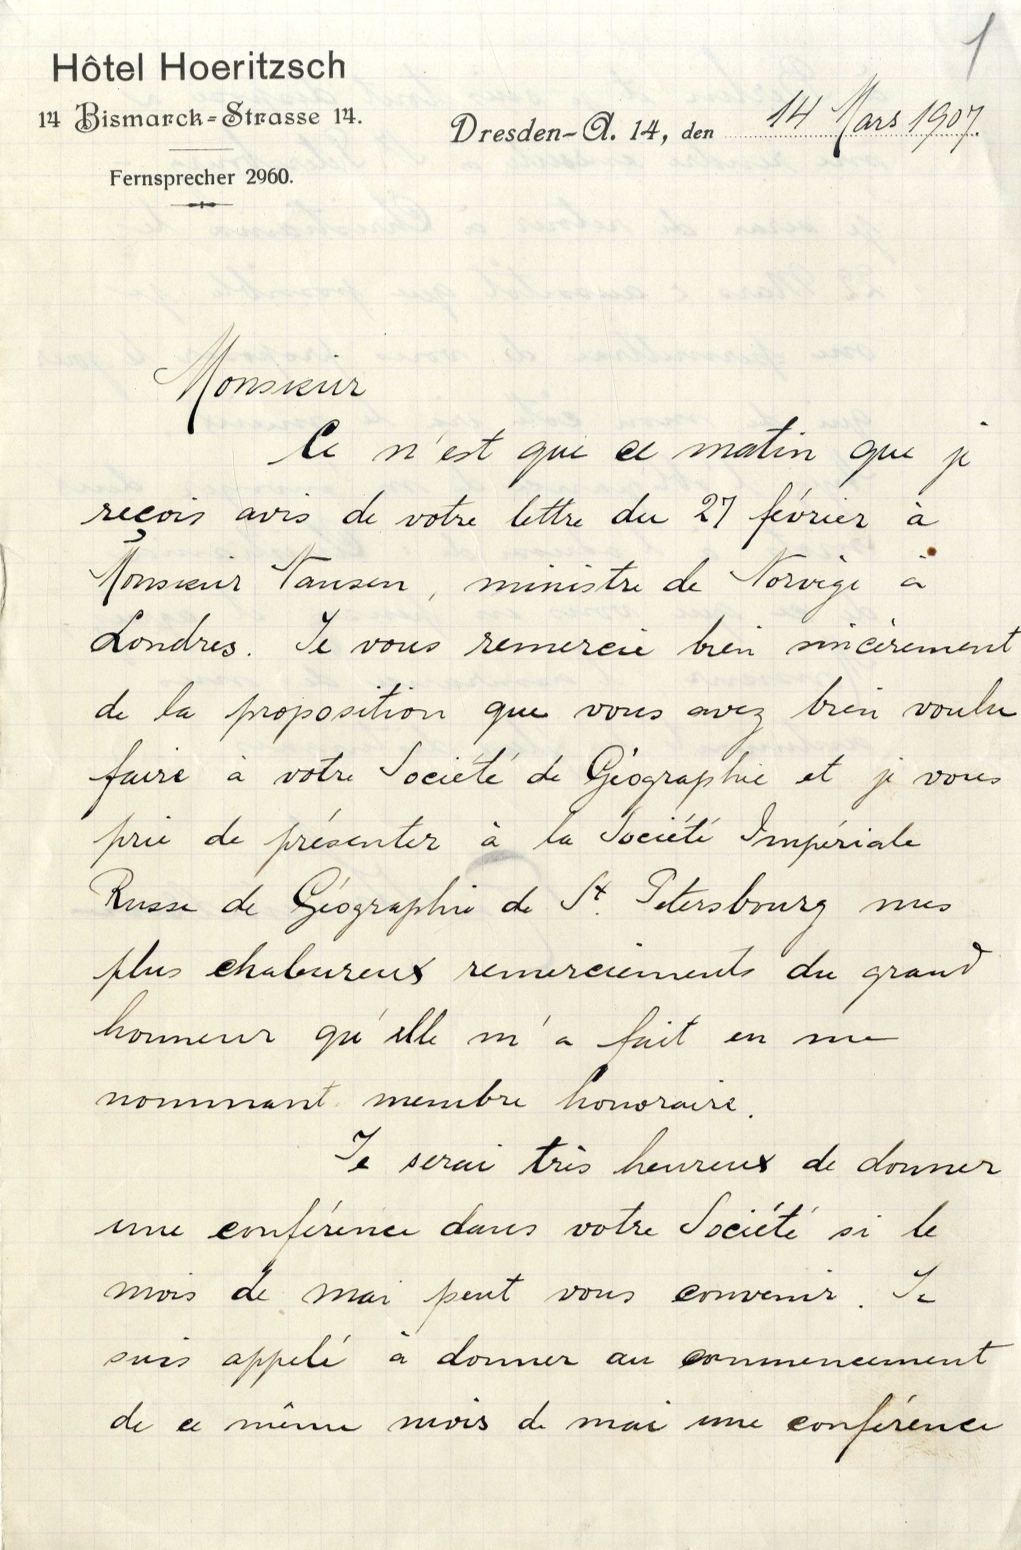 1
Hôtel Hoeritzsch
14 Bismarck-Strasse 14.
Dresden-A. 14, den 14 Mars 1907.
Fernsprecher 2960.
Monsieur
Ce n'est que ce matin que je
reçois avis de votre lettre du 27 février à
Monsieur Nansen, ministre de Norvège à
Londres. Je vous remercie bien sincèrement
de la proposition que vous avez bien voulu
faire à votre Société de Géographie et je vous
prie de présenter à la Société Impériale
Russe de Géographie de St. Petersbourg mes
plus chaleureux remerciements du grand
honneur qu'elle m'a fait en me
nommant membre honoraire.
Je serai très heureux de donner
une conférence dans votre Société si le
mois de mai peut vous convenir. Je
suis appelé à donner au commencement
de ce même mois de mai une conférence